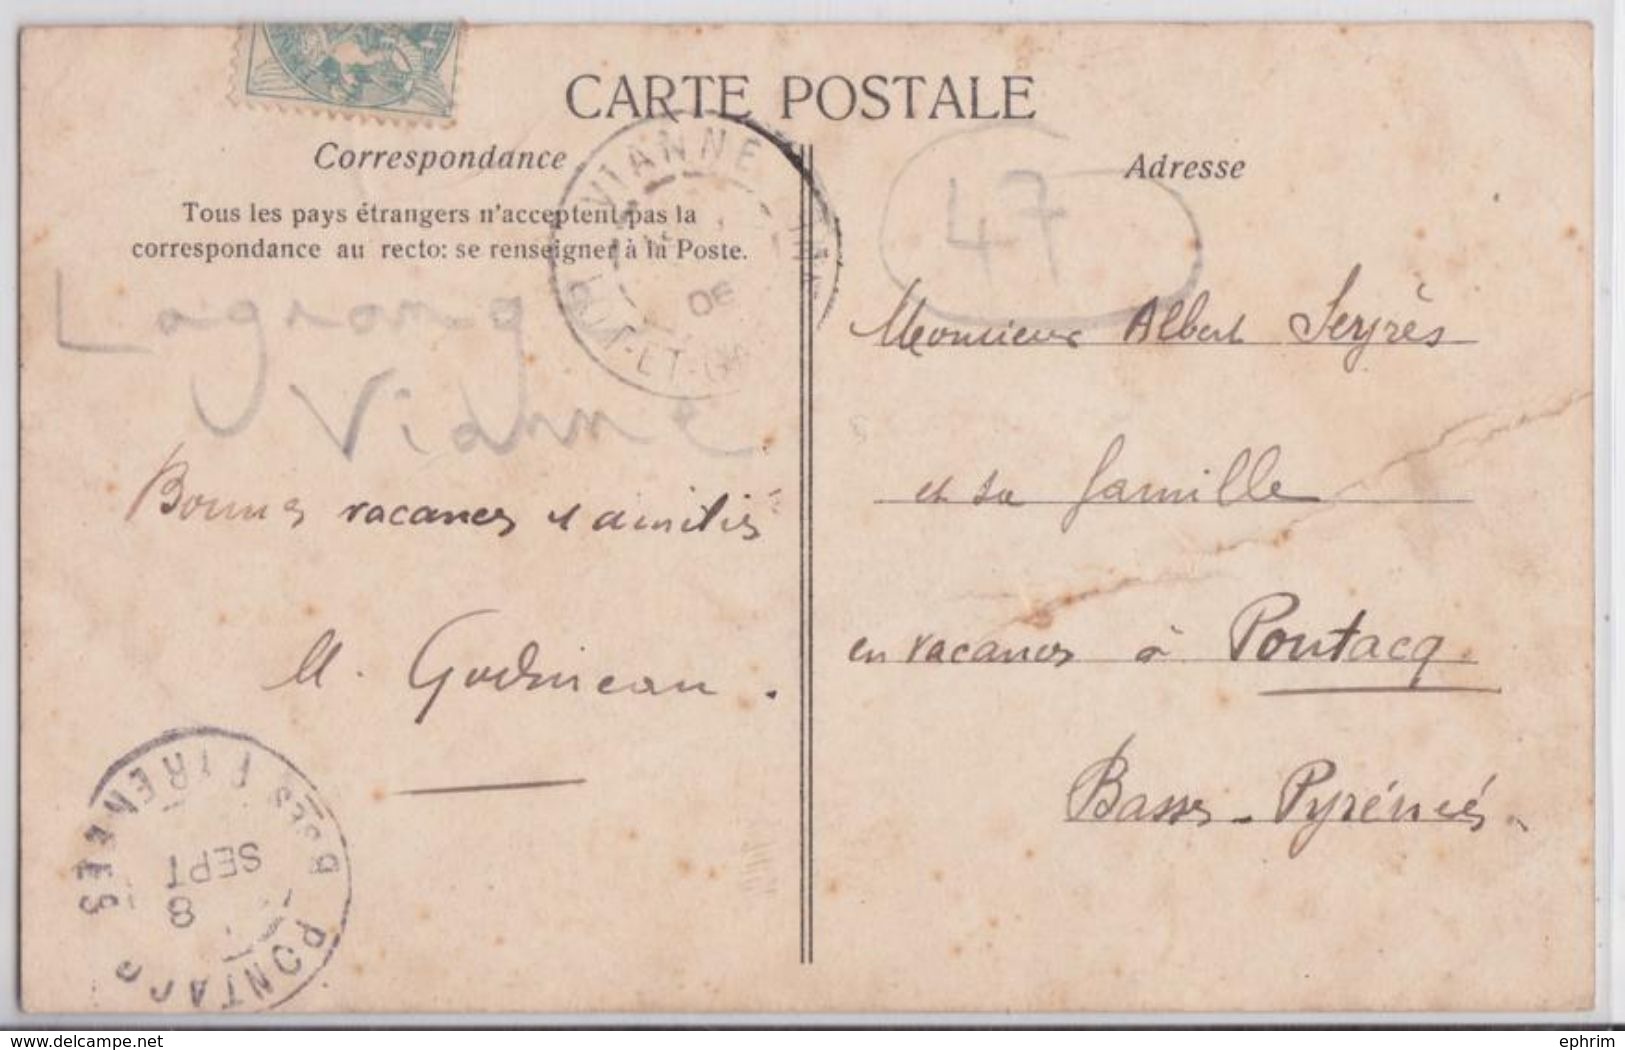 CARTE POSTALE
Correspondance
Adresse
Tous les pays étrangers n'acceptent pas la
correspondance au recto: se renseigner à la Poste.
VIANNE
LOT-ET-GAR
06
47
Lagrang
Vianne
Bonnes vacances & amitiés
M. Godineau.
Monsieur Albert Seyrès
et sa famille
en vacances à Pontacq
Basses-Pyrénées.
PONTACQ
BSSES PYRENEES
8
SEPT
delcampe.net
ephrim